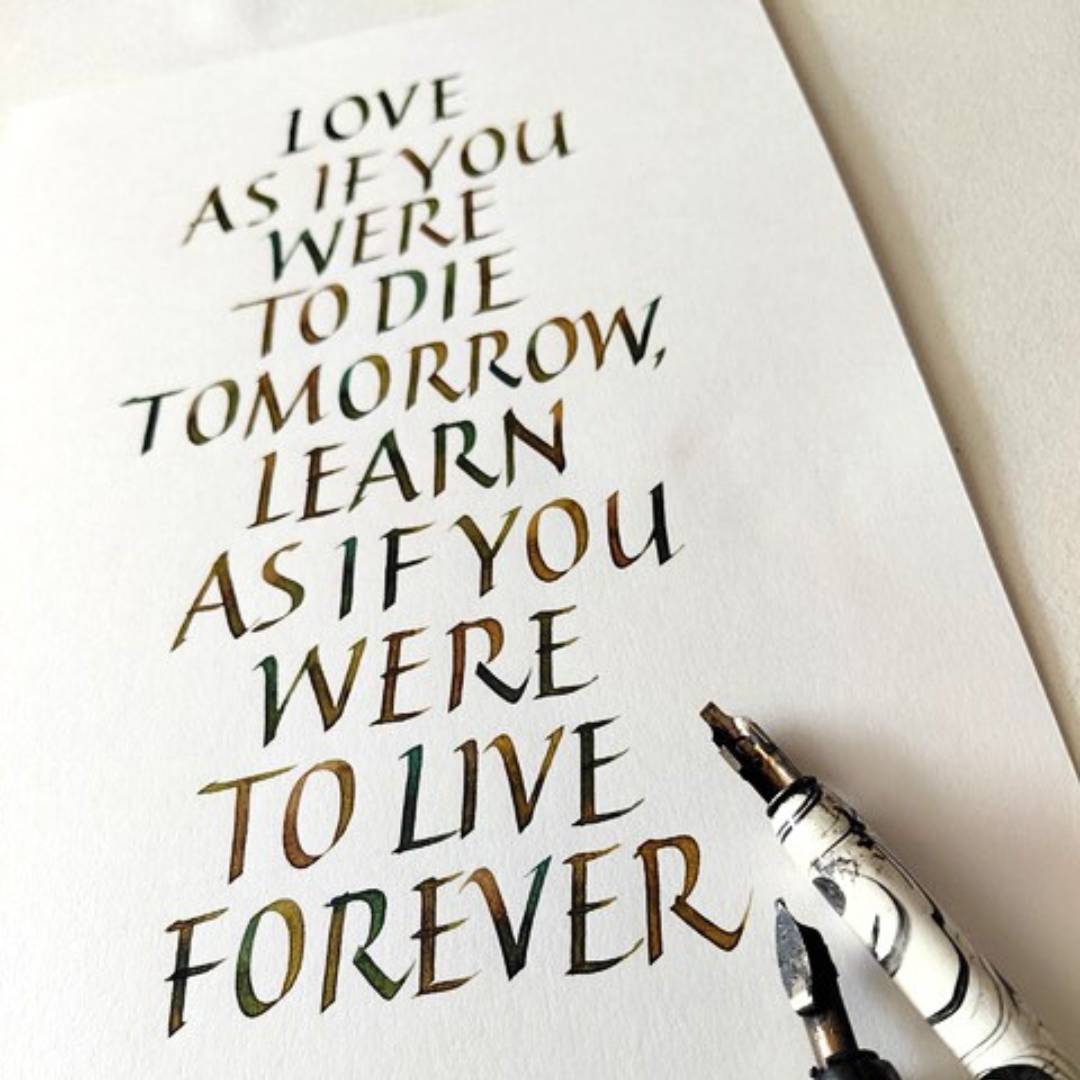 LOVE
AS IF YOU
WERE
TO DIE
TOMORROW,
LEARN
AS IF YOU
WERE
TO LIVE
FOREVER